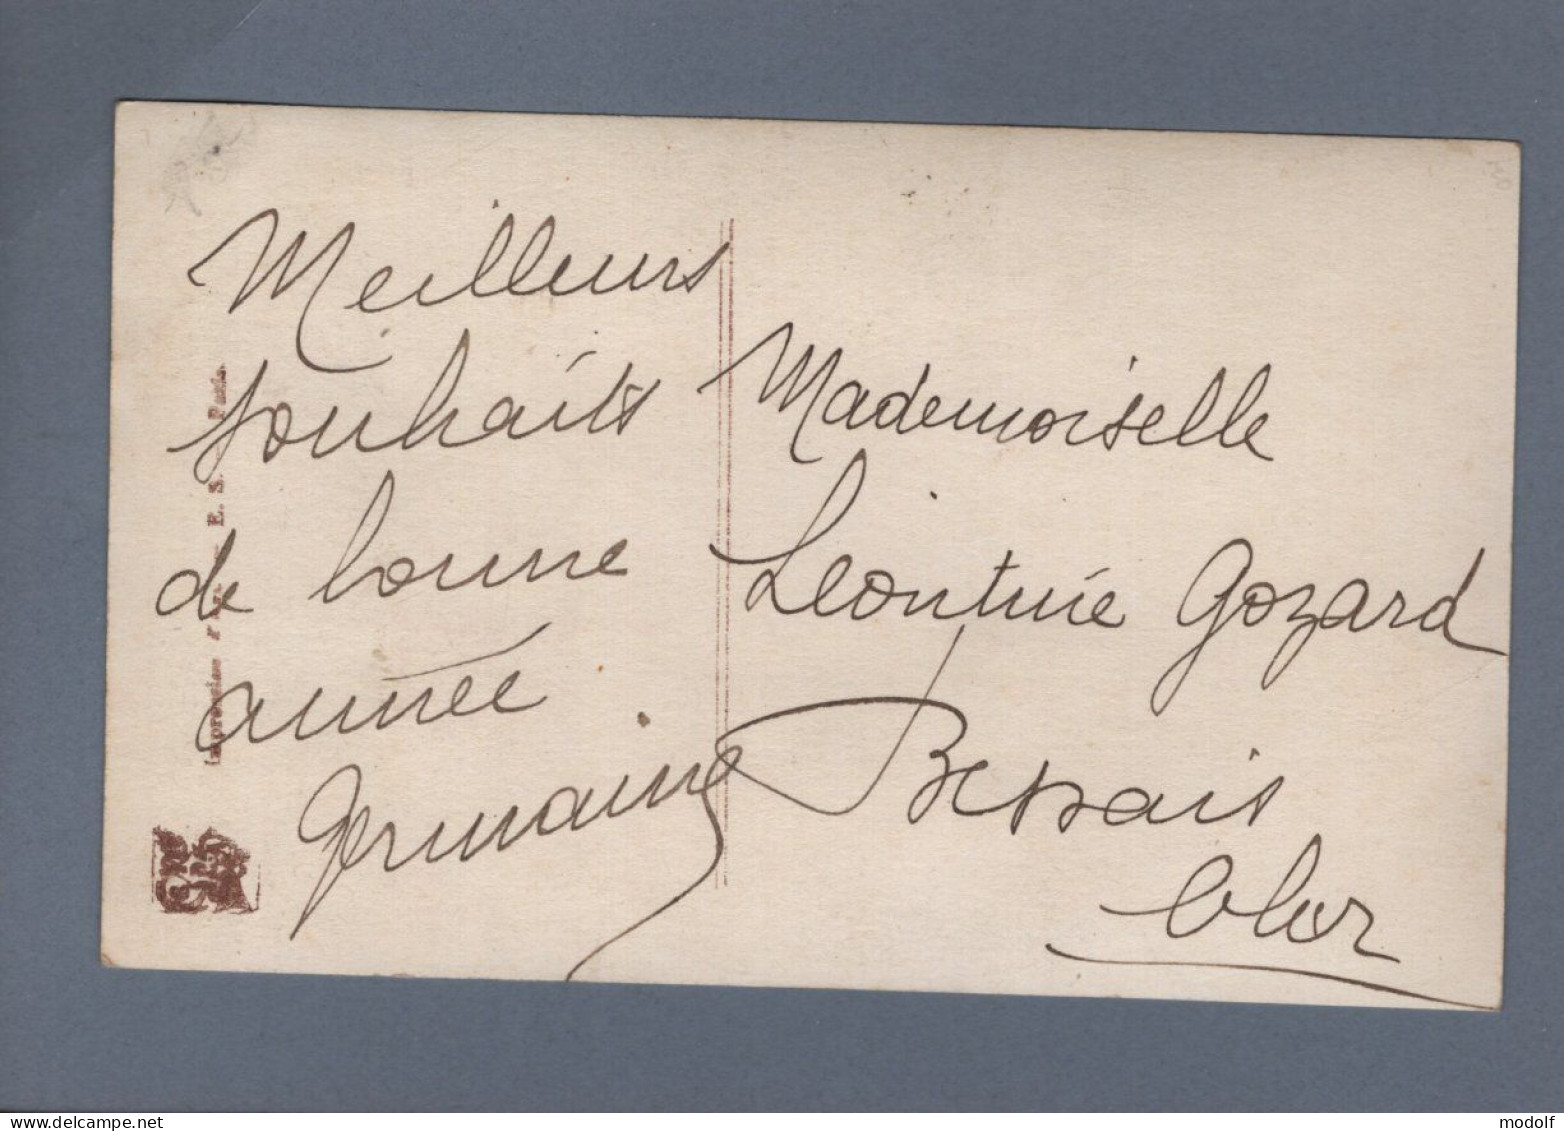 Meilleurs
souhaits
de bonne
année
Germaine
Mademoiselle
Léontine Gozard
Bessais
Cher
E. S. Paris
www.delcampe.net
modolf